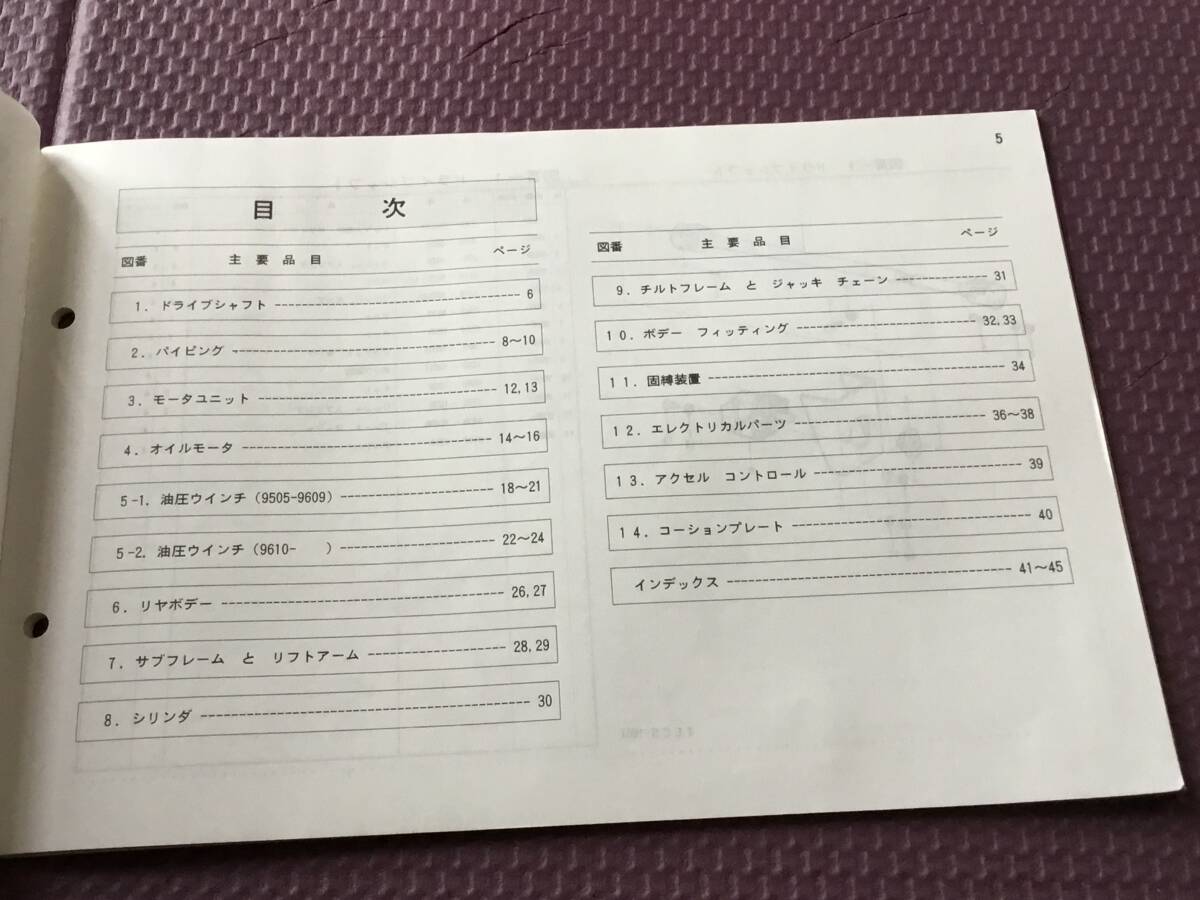 5
目 次
図番 主要品目 ページ
1. ドライブシャフト 6
2. パイピング 8〜10
3. モータユニット 12,13
4. オイルモータ 14〜16
5-1. 油圧ウインチ(9505-9609) 18〜21
5-2. 油圧ウインチ(9610- ) 22〜24
6. リヤボデー 26,27
7. サブフレーム と リフトアーム 28,29
8. シリンダ 30
図番 主要品目 ページ
9. チルトフレーム と ジャッキ チェーン 31
10. ボデー フィッティング 32,33
11. 固縛装置 34
12. エレクトリカルパーツ 36〜38
13. アクセル コントロール 39
14. コーションプレート 40
インデックス 41〜45